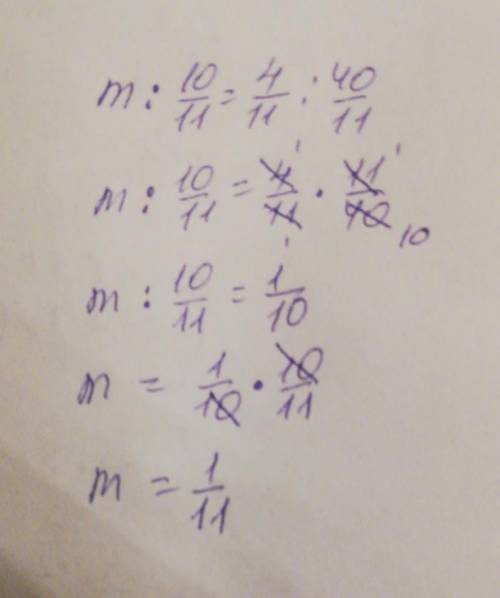 m : 10/11 = 4/11 : 40/11
m : 10/11 = 4/11 · 11/40 1 1 1 10
m : 10/11 = 1/10
m = 1/10 · 10/11
m = 1/11